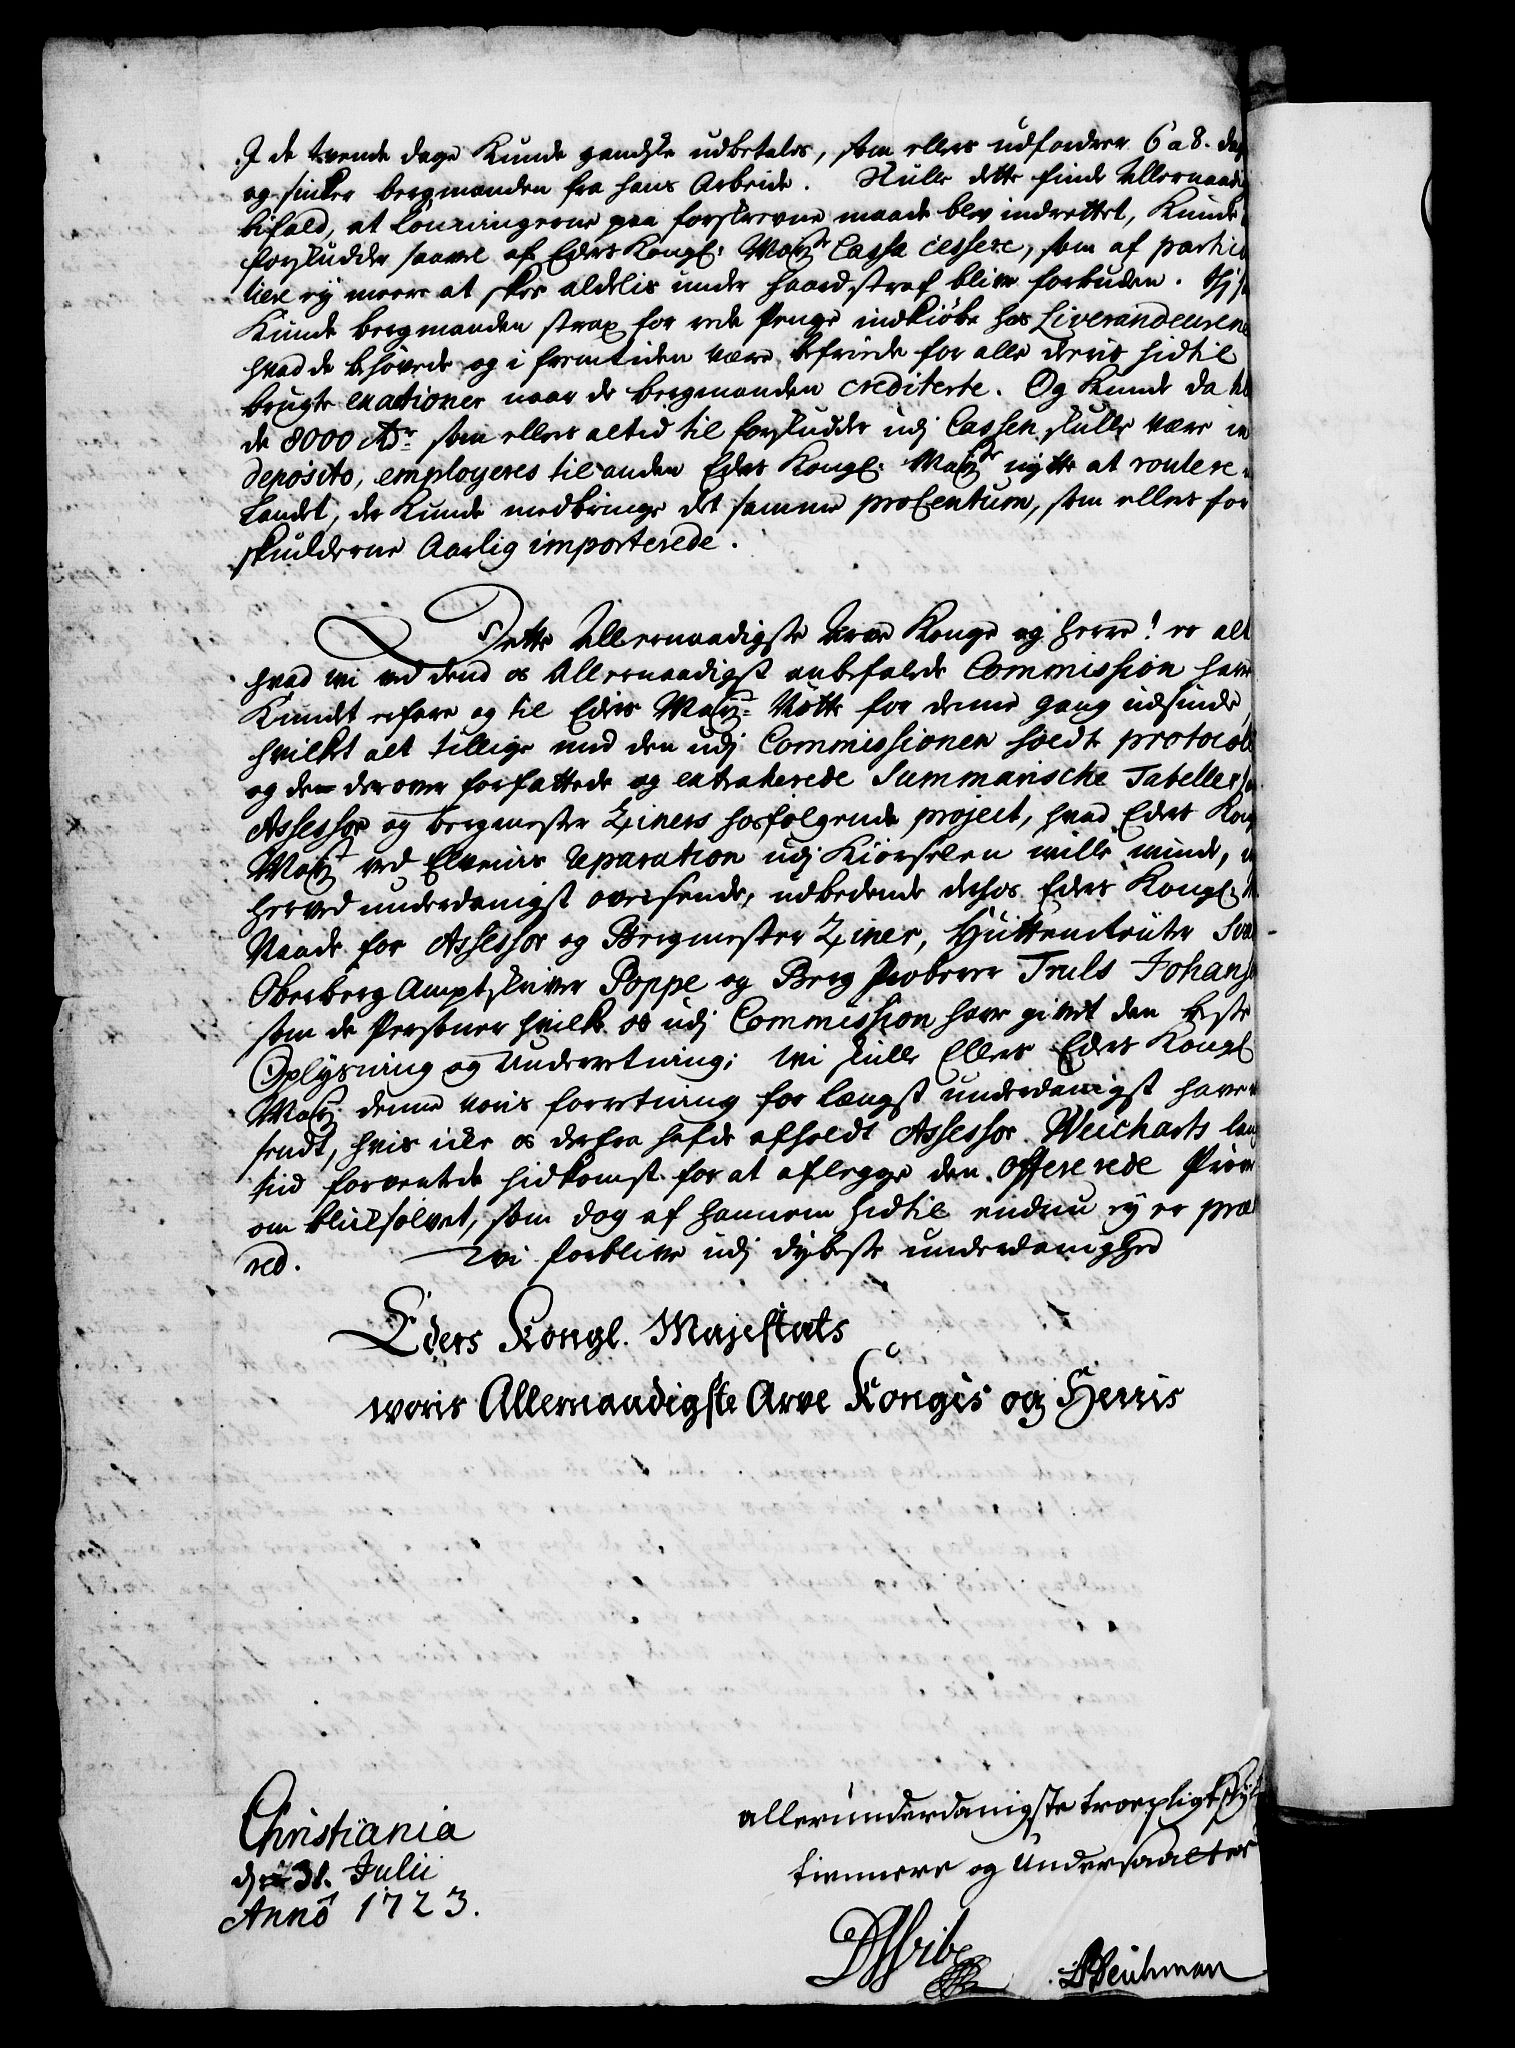 I de tvende dage Kunde gandske udbetales, som ellers udfordrer 6 a 8. dag
og sinker bergmanden fra hans Arbeide. Skulle dette finde Allernaadig
bifald, at Lønningerne paa forskrevne maade blev indrettet, Kunde
forskudder saavel af Eders Kongl: Mayts Cassa cessere, som af particu
liere ey meere at skee aldelis under haard straf blive forbuden.
Kunde bergmanden strax for rede Penge indkiøbe hos Liverandeurene
hvad de behøvede og i fremtiden være befriede for alle deris hidtil
brugte exactioner naar de bergmanden crediterte. Og Kunde da
de 8000 Rdr som ellers altid til forskudde udj Cassen skulle være in
deposito, employeres til anden Eders Kongl: Mayts nytte at roulere
Landet, der Kunde medbringe det samme proCentum, som ellers for
skudderne Aarlig importerede.
Dette Allernaadigste Arve Konge og Herre! er alt
hvad vi ved dend os Allernaadigst anbefalede Commission have
Kundet erfare og til Eders Mayts Nøtte for denne gang udfinde,
hvilket alt tillige med den udj Commissionen holdte protocoll
og den derover forfattede og extraherede Summarische Tabeller
Assessor og bergmester Ziners hosfølgende project, hvad Eders Kong
Mayt ved Elvenis reparation udj Kiørselen ville vinde,
herved underdanigst oversende, udbedende derhos Eders Kongl:
Naade for Assessor og Bergmester Ziner, Hüttendeüter
Oberberg Amptskriver Poppe og Berg Proberer Truls Johans
som de Personer hvilke os udj Commission have givet den beste
Oplysning og underretning; wi skulle Ellers Eders Kongl
Mayt. denne voris forretning for længst underdanigst have
sendt, hvis icke os derfra hafde afholdt Assessor Weicharts lang
tiid forventede hidkomst for at aflegge den offererede Prøve
om blicksølvet, som dog af hannem hidtil endnu ey er præ
red. Wi forblive udj dybeste underdanighed
Eders Kongl. Majestäts
woris Allernaadigste Arve Konges og Herris
Christiania
d 31. Julii
Anno 1723.
allerunderdanigste troepligtskyl
tiennere og Undersaatter
DWibe
BWeichman